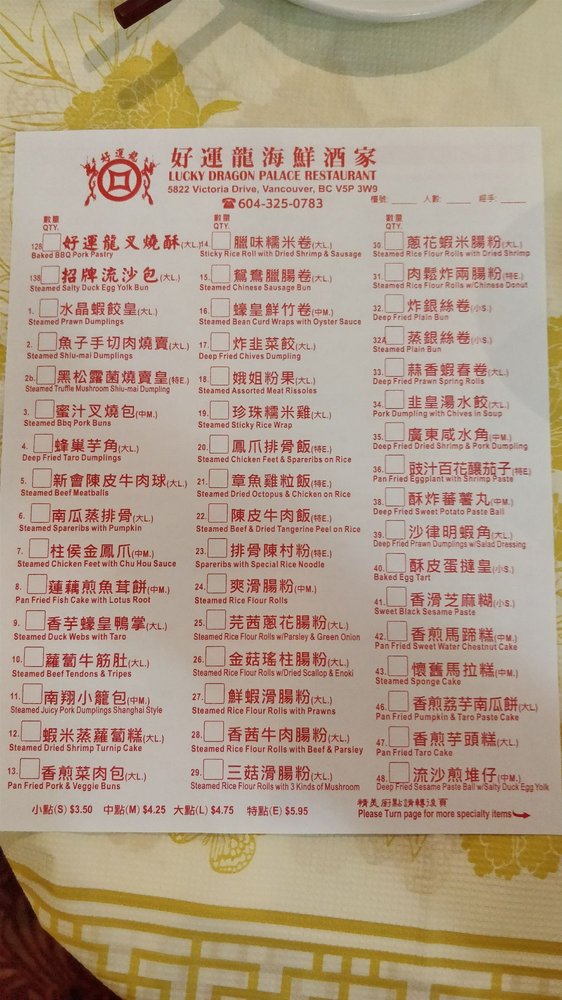 好運龍
好運龍海鮮酒家
LUCKY DRAGON PALACE RESTAURANT
5822 Victoria Drive, Vancouver, BC V5P 3W9
☎604-325-0783
檯號: 人數: 經手:
數量
QTY.
128 好運龍叉燒酥(大L.)
Baked BBQ Pork Pastry
138 招牌流沙包(大L.)
Steamed Salty Duck Egg Yolk Bun
1. 水晶蝦餃皇(大L.)
Steamed Prawn Dumplings
2. 魚子手切肉燒賣(大L.)
Steamed Shiu-mai Dumplings
2b. 黑松露菌燒賣皇(特E.)
Steamed Truffle Mushroom Shiu-mai Dumpling
3. 蜜汁叉燒包(中M.)
Steamed Bbq Pork Buns
4. 蜂巢芋角(大L.)
Deep Fried Taro Dumplings
5. 新會陳皮牛肉球(大L.)
Steamed Beef Meatballs
6. 南瓜蒸排骨(大L.)
Steamed Spareribs with Pumpkin
7. 柱侯金鳳爪(中M.)
Steamed Chicken Feet with Chu Hou Sauce
8. 蓮藕煎魚茸餅(中M.)
Pan Fried Fish Cake with Lotus Root
9. 香芋蠔皇鴨掌(大L.)
Steamed Duck Webs with Taro
10. 蘿蔔牛筋肚(大L.)
Steamed Beef Tendons & Tripes
11. 南翔小籠包(中M.)
Steamed Juicy Pork Dumplings Shanghai Style
12. 蝦米蒸蘿蔔糕(大L.)
Steamed Dried Shrimp Turnip Cake
13. 香煎菜肉包(大L.)
Pan Fried Pork & Veggie Buns
數量
QTY.
14. 臘味糯米卷(大L.)
Sticky Rice Roll with Dried Shrimp & Sausage
15. 鴛鴦臘腸卷(大L.)
Steamed Chinese Sausage Bun
16. 蠔皇鮮竹卷(中M.)
Steamed Bean Curd Wraps with Oyster Sauce
17. 炸韭菜餃(大L.)
Deep Fried Chives Dumpling
18. 娥姐粉果(大L.)
Steamed Assorted Meat Rissoles
19. 珍珠糯米雞(大L.)
Steamed Sticky Rice Wrap
20. 鳳爪排骨飯(特E.)
Steamed Chicken Feet & Spareribs on Rice
21. 章魚雞粒飯(特E.)
Steamed Dried Octopus & Chicken on Rice
22. 陳皮牛肉飯(特E.)
Steamed Beef & Dried Tangerine Peel on Rice
23. 排骨陳村粉(特E.)
Spareribs with Special Rice Noodle
24. 爽滑腸粉(中M.)
Steamed Rice Flour Rolls
25. 芫茜蔥花腸粉(大L.)
Steamed Rice Flour Rolls w/Parsley & Green Onion
26. 金菇瑤柱腸粉(大L.)
Steamed Rice Flour Rolls w/Dried Scallop & Enoki
27. 鮮蝦滑腸粉(大L.)
Steamed Rice Flour Rolls with Prawns
28. 香茜牛肉腸粉(大L.)
Steamed Rice Flour Rolls with Beef & Parsley
29. 三菇滑腸粉(大L.)
Steamed Rice Flour Rolls with 3 Kinds of Mushroom
數量
QTY.
30. 蔥花蝦米腸粉(大L.)
Steamed Rice Flour Rolls with Dried Shrimp
31. 肉鬆炸兩腸粉(特E.)
Steamed Rice Flour Rolls w/Chinese Donut
32. 炸銀絲卷(小S.)
Deep Fried Plain Bun
32A 蒸銀絲卷(小S.)
Steamed Plain Bun
33. 蒜香蝦春卷(大L.)
Deep Fried Prawn Spring Rolls
34. 韭皇湯水餃(大L.)
Pork Dumpling with Chives in Soup
35. 廣東咸水角(中M.)
Deep Fried Dried Shrimp & Pork Dumpling
36. 豉汁百花釀茄子(特E.)
Pan Fried Eggplant with Shrimp Paste
38. 酥炸蕃薯丸(中M.)
Deep Fried Sweet Potato Paste Ball
39. 沙律明蝦角(大L.)
Deep Fried Prawn Dumplings w/Salad Dressing
40. 酥皮蛋撻皇(小S.)
Baked Egg Tart
41. 香滑芝麻糊(小S.)
Sweet Black Sesame Paste
42. 香煎馬蹄糕(中M.)
Pan Fried Sweet Water Chestnut Cake
43. 懷舊馬拉糕(中M.)
Steamed Sponge Cake
46. 香煎荔芋南瓜餅(大L)
Pan Fried Pumpkin & Taro Paste Cake
47. 香煎芋頭糕(大L.)
Pan Fried Taro Cake
48. 流沙煎堆仔(中M.)
Deep Fried Sesame Paste Ball w/Salty Duck Egg Yolk
小點(S) $3.50 中點(M) $4.25 大點(L) $4.75 特點(E) $5.95
精美廚點請轉後頁
Please Turn page for more specialty items